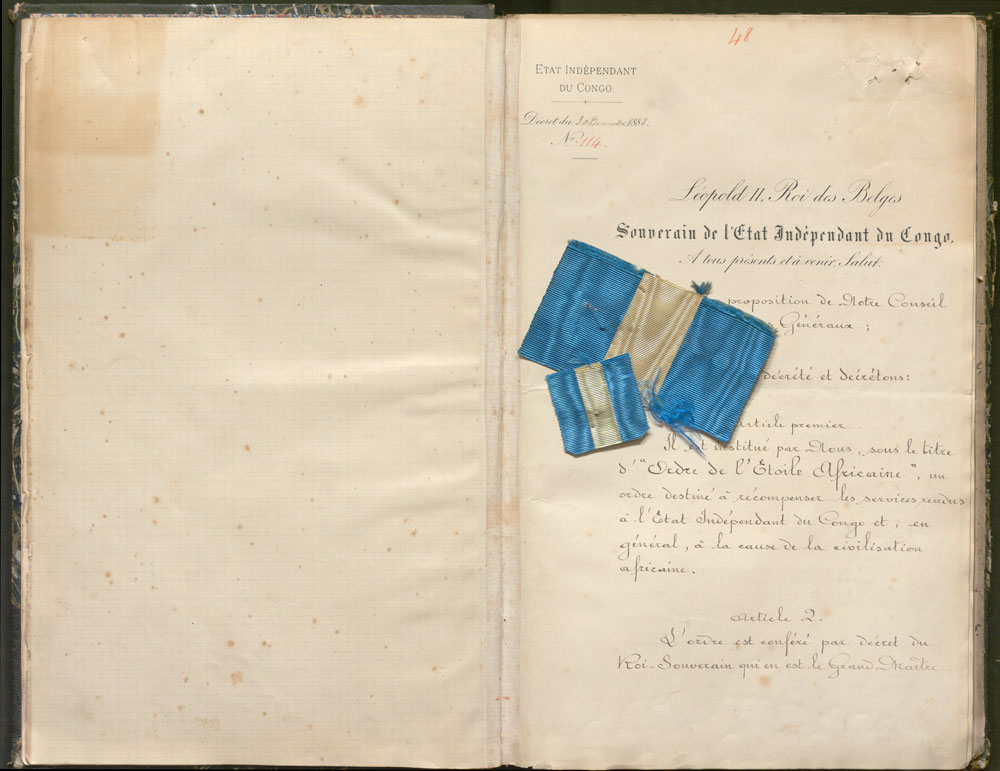 48
ETAT INDÉPENDANT
DU CONGO.
Décret du 30 Décembre 1888.
No 114.
Léopold II, Roi des Belges
Souverain de l'Etat Indépendant du Congo,
A tous présents et à venir, Salut:
proposition de Notre Conseil
Généraux ;
décrété et décrétons:
Article premier.
Il est institué par Nous, sous le titre
d'"Ordre de l'Etoile Africaine", un
ordre destiné à récompenser les services rendus
à l'Etat Indépendant du Congo et, en
général, à la cause de la civilisation
africaine.
Article 2.
L'ordre est conféré par décret du
Roi-Souverain qui en est le Grand-Maître